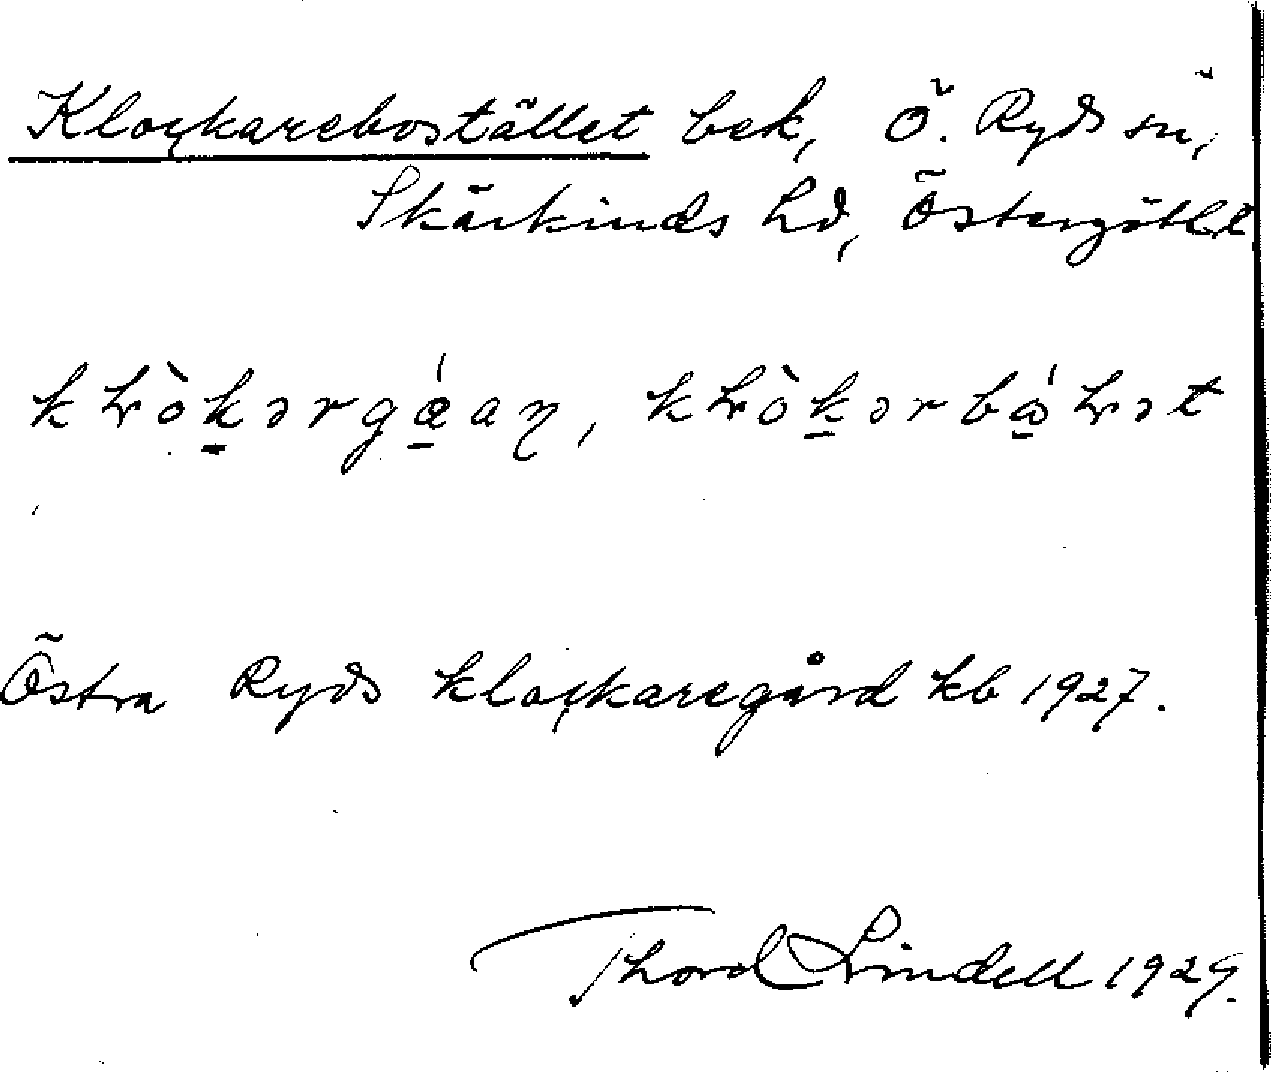 Klockarebostället bek, Ö. Ryds sn,
Skärkinds hd, Östergötl.
Östra Ryds klockaregård kb 1927.
Thord Lindell 1929.